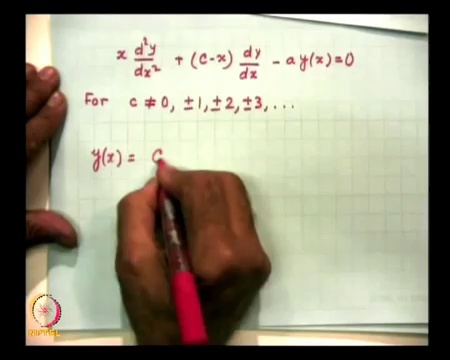 x d²y/dx² + (c-x) dy/dx - a y(x) = 0
For c ≠ 0, ±1, ±2, ±3, ...
y(x) = C
NPTEL